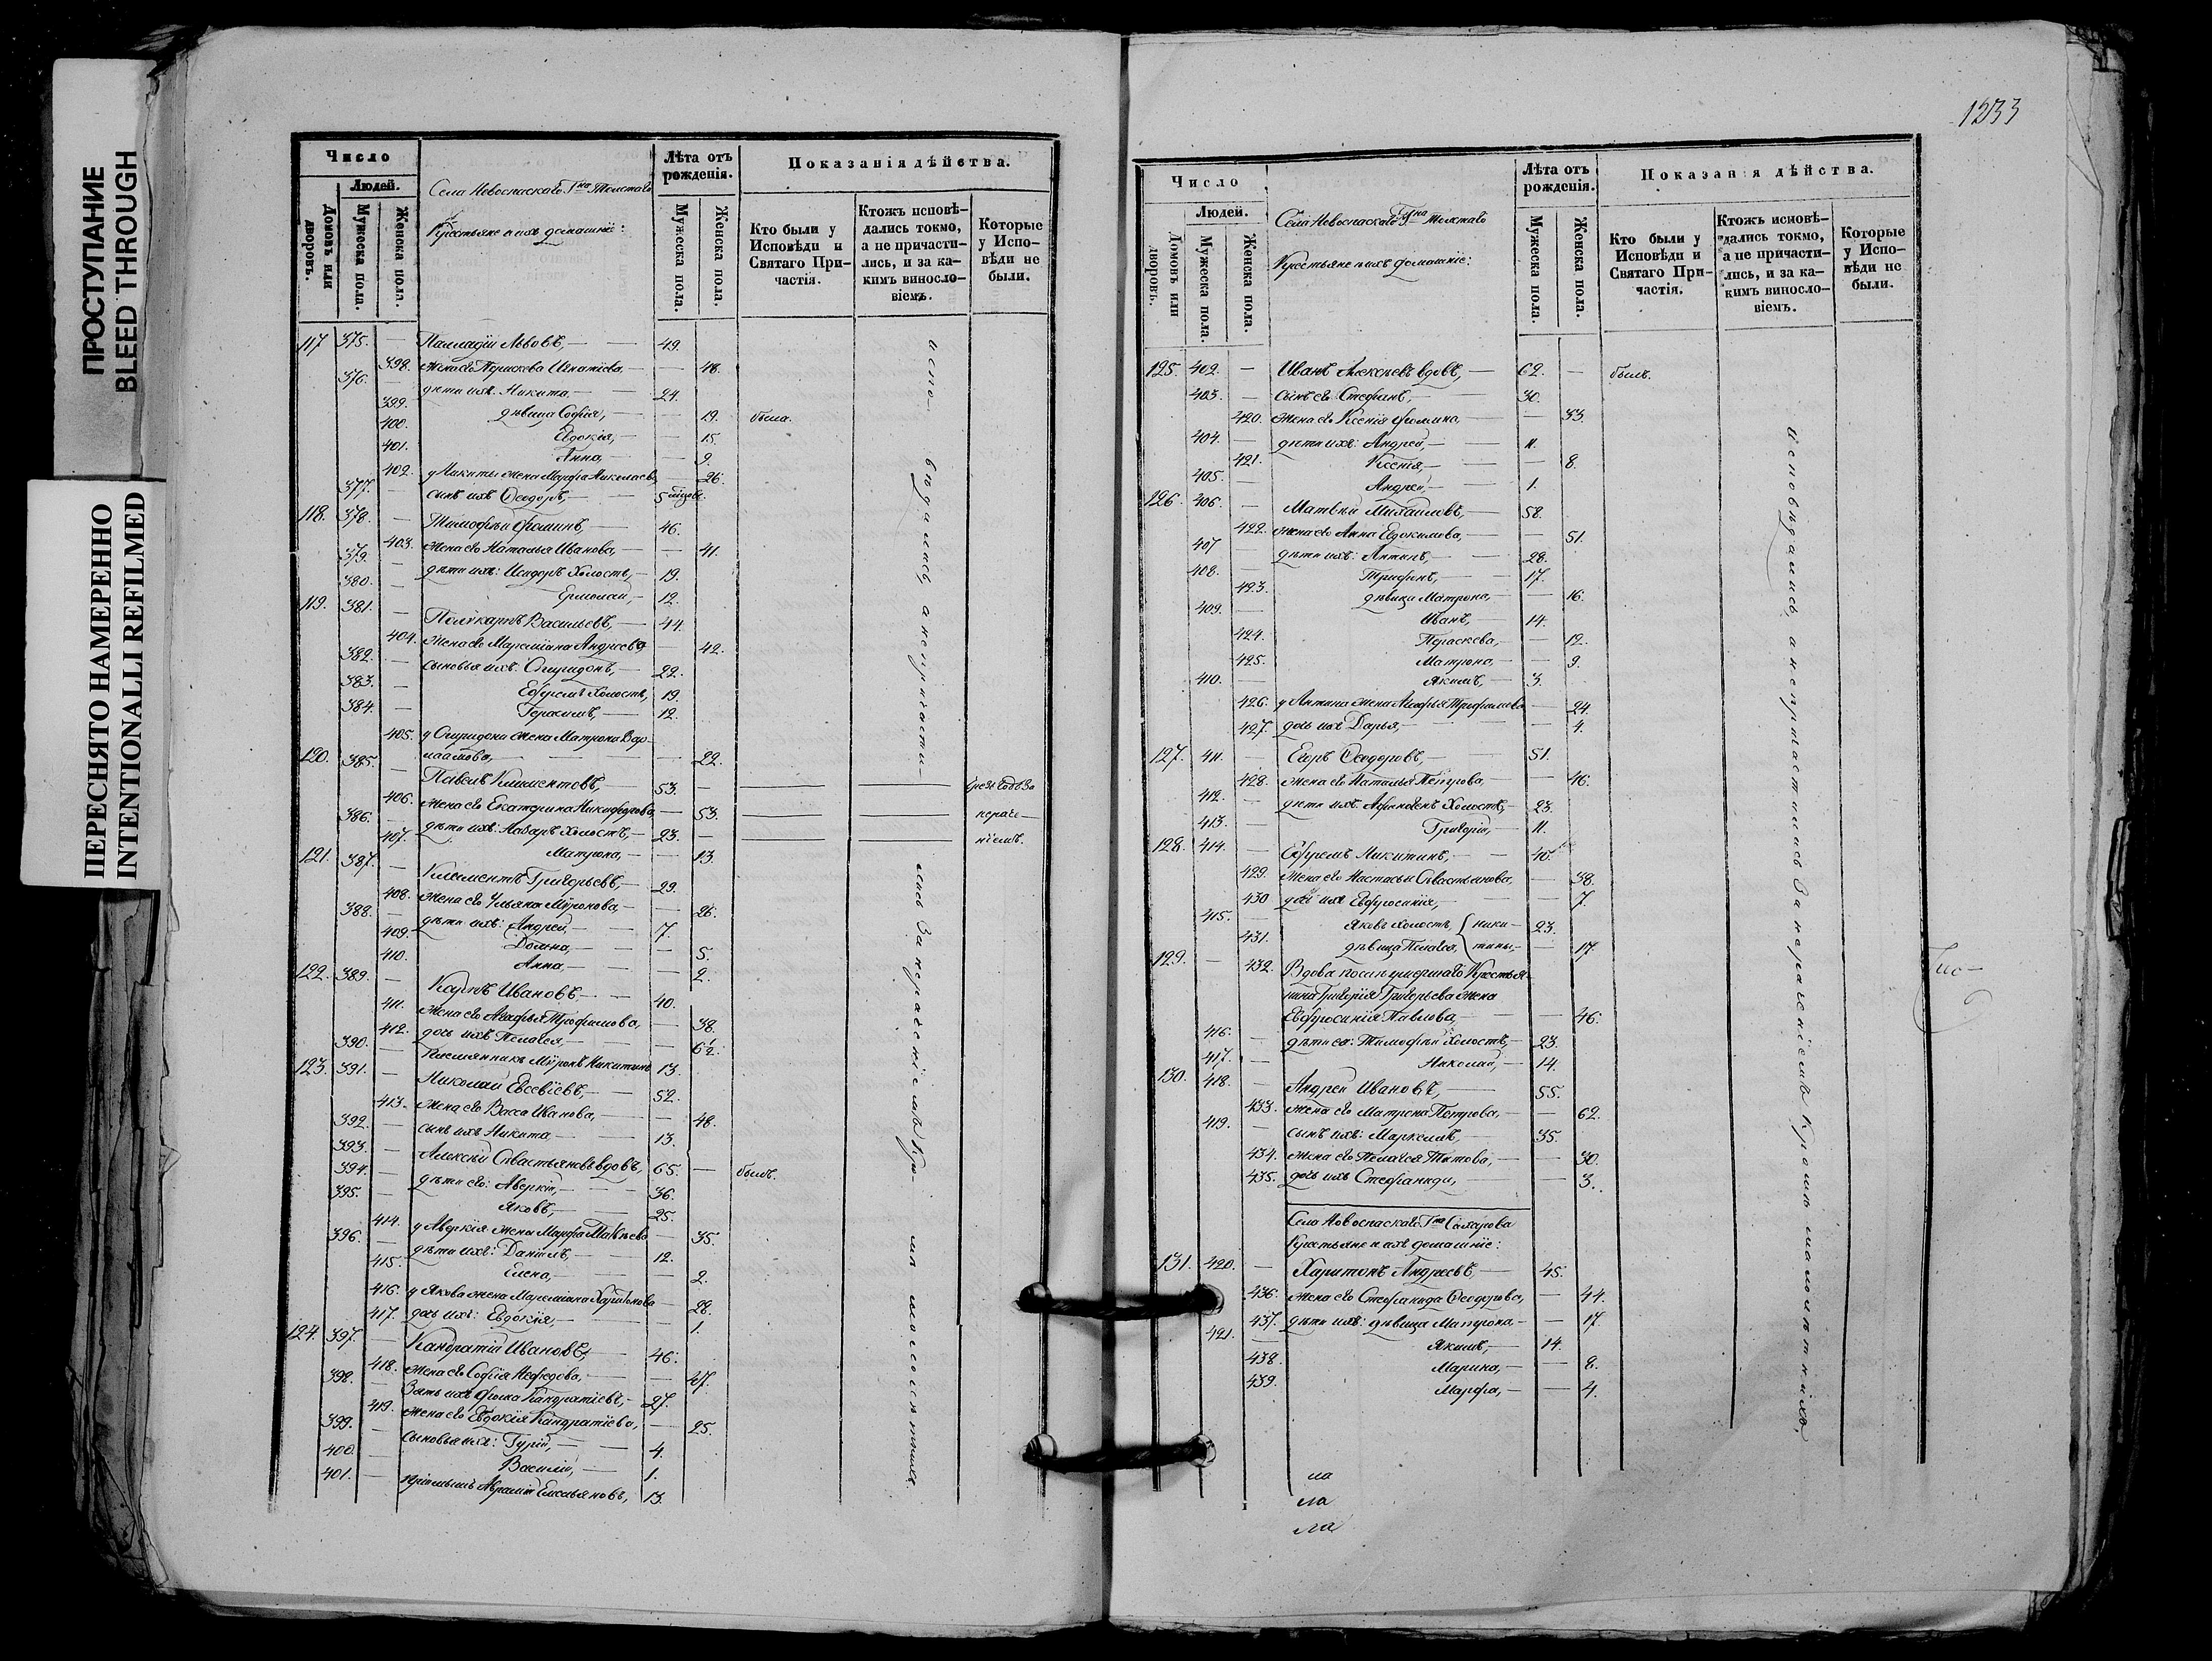 ПРОСТУПАНИЕ
BLEED THROUGH
ПЕРЕСНЯТО НАМЕРЕННО
INTENTIONALLI REFILMED
Число
Людей.
Домовъ или дворовъ.
Мужеска пола.
Женска пола.
Села Новоспаскаго Гна Толстаго
Крестьяне и ихъ домашніе:
Лѣта отъ рожденія.
Мужеска пола.
Женска пола.
Показанія дѣйства.
Кто были у Исповѣди и Святаго При-частія.
Ктожъ исповѣ-дались токмо, а не причасти-лись, и за ка-кимъ винослo-віемъ.
Которые у Испо-вѣди не были.
117 375. — Палладій Львовъ, — 49.
398. жена его Параскева Игнатіева, — 48.
376. — дѣти ихъ: Никита — 24.
399. дѣвица Софія, — 19. была.
400. Евдокія, — 15.
401. Анна, — 9.
402. у Никиты жена Марфа Николаева — 26.
377. — сынъ ихъ Ѳеодоръ, — 5
118. 378. — Тимофѣй Фоминъ, — 46.
403. жена его Наталья Иванова, — 41.
379. — дѣти ихъ: Исидоръ холостъ, — 19.
380. — Ермолай, — 12.
119. 381. — Поликарпъ Васильевъ, — 44.
404. жена его Мареміана Андреева — 42.
382. — сыновья ихъ: Спиридонъ, — 22.
383. — Ефремъ холостъ, 19.
384. — Герасимъ, — 12.
405. у Спиридона жена Матрона Вар-
лаамова, — 22.
120. 385. — Павелъ Климентовъ, — 53. —
406. жена его Екатерина Никифорова, — 53. нераче-
386. — дѣти ихъ: Назаръ холостъ, — 23. — ніемъ.
407. Матрона, — 13.
121. 387. — Климентъ Григорьевъ, — 29.
408. жена его Ульяна Мѵронова, — 26.
388. — дѣти ихъ: Андрей, — 7.
409. Домна, — 5.
410. Анна, — 2.
122. 389. — Карпъ Ивановъ, — 40.
411. жена его Агафья Трофимова, — 38.
412. дочь ихъ Пелагея, — 6½.
390. — племянникъ Мѵронъ Никитинъ 13.
123. 391. — Николай Евсевіевъ, — 52.
413. жена его Васса Иванова, — 48.
392. — сынъ ихъ Никита — 13.
393. — Алексѣй Севастьяновъ вдовъ, 65. — былъ.
394. — дѣти его: Аверкій, — 36.
395. — Яковъ, — 25.
414. у Аверкія жена Марфа Матвѣева — 35.
396. — дѣти ихъ: Даніилъ, — 12.
415. Елена, — 2.
416. у Якова жена Мареміана Харитонова — 28.
417. дочь ихъ: Евдокія, — 1.
124. 397. — Кандратій Ивановъ, — 46.
418. жена его Софія Нефедова, — 47.
398. — Зять ихъ Фома Кандратіевъ, — 27.
419. жена его Евдокія Кандратіева, — 25.
399. — сыновья ихъ: Гурій, — 4.
400. — Василій, — 1.
401. — пріемышъ Аврамій Емельяновъ, 13.
испо-вѣдались, а непричасти-лись за нераченіемъ кро-мѣ малолѣтнихъ
1233
Число
Людей.
Домовъ или дворовъ.
Мужеска пола.
Женска пола.
Села Новоспаскаго Гна Толстаго
Крестьяне и ихъ домашніе:
Лѣта отъ рожденія.
Мужеска пола.
Женска пола.
Показанія дѣйства.
Кто были у Исповѣди и Святаго При-частія.
Ктожъ исповѣ-дались токмо, а не причасти-лись, и за ка-кимъ винослo-віемъ.
Которые у Испо-вѣди не были.
125. 402. — Иванъ Алексѣевъ вдовъ, — 62. — былъ.
403. — сынъ его Стефанъ, — 30.
420. жена его Ксенія Фомина, — 33.
404. — дѣти ихъ: Андрей, — 11.
421. Ксенія, — 8.
405. — Андрей, — 1.
126. 406. — Матвѣй Михаиловъ, — 58.
422. жена его Анна Евдокимова, — 51.
407 — дѣти ихъ: Антипъ, — 28.
408. — Трифонъ, — 17.
423. дѣвица Матрона, — 16.
409. — Иванъ, — 14.
424. Параскева, — 12.
425. Матрона, — 9.
410. — Якимъ, — 3.
426. у Антипа жена Агафья Трофимова — 24.
427. дочь ихъ Дарья, — 4.
127. 411. — Егоръ Ѳеодоровъ, — 51.
428. жена его Наталья Петрова, — 46.
412. — дѣти ихъ: Парфенъ холостъ, — 23.
413. — Григорій, — 11.
128. 414. — Ефремъ Никитинъ, — 40.
429. жена его Настасья Севастьянова, — 38.
430 дочь ихъ Евфросинія, — 7.
415. — Яковъ холостъ, { Ники- 23.
431. дѣвица Пелагея, { тины, — 17.
129. — 432. Вдова послѣ умершаго Крестья-
нина Григорія Григорьева жена
Евфросинія Павлова, — 46.
416. — дѣти ея: Тимофѣй холостъ, — 23.
417. — Николай, — 14.
130. 418. — Андрей Ивановъ, — 55.
433. жена его Матрона Петрова, — 62.
419. — сынъ ихъ: Маркелъ, — 35.
434. жена его Пелагея Титова, — 30.
435. дочь ихъ Стефанида, — 3.
Села Новоспаскаго Гна Сахарова
Крестьяне и ихъ домашніе:
131. 420. — Харитонъ Андреевъ, — 45.
436. жена его Стефанида Ѳеодорова, — 44.
437. дѣти ихъ: дѣвица Матрона — 17.
421. — Якимъ, — 14.
438. Марина, — 8.
439. Марфа, — 4.
исповѣдались, а непричастились за нераченіемъ кромѣ малолѣтнихъ.